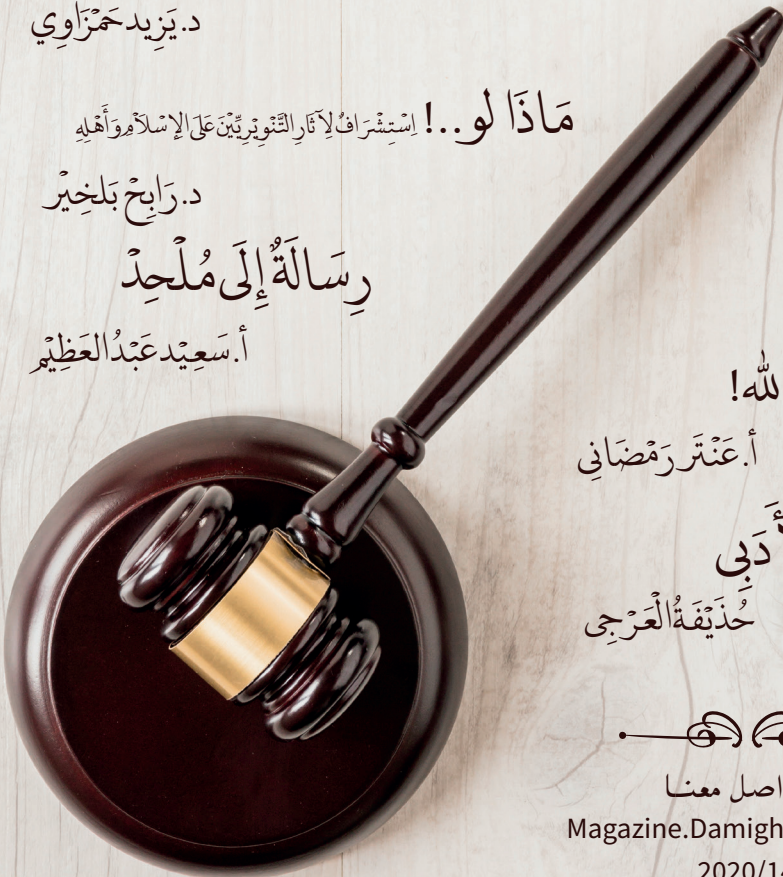 د.يَزِيد حَمْزَاوِي
مَاذَا لو..! اِسْتِشْرَافٌ لِآثَارِ التَّنْوِيْرِيِّيْنَ عَلَى الإِسْلَامِ وَأَهْلِهِ
د.رَابِحْ بَلخِيْر
رِسَالَةٌ إِلَى مُلْحِدْ
أ.سَعِيْد عَبْدُ العَظِيْم
لله!
أ.عَنْتَر رَمْضَانِي
أَدَبِي
حُذَيْفَةُ الْعَرْجِي
اصل معنا
Magazine.Damigh
2020/1